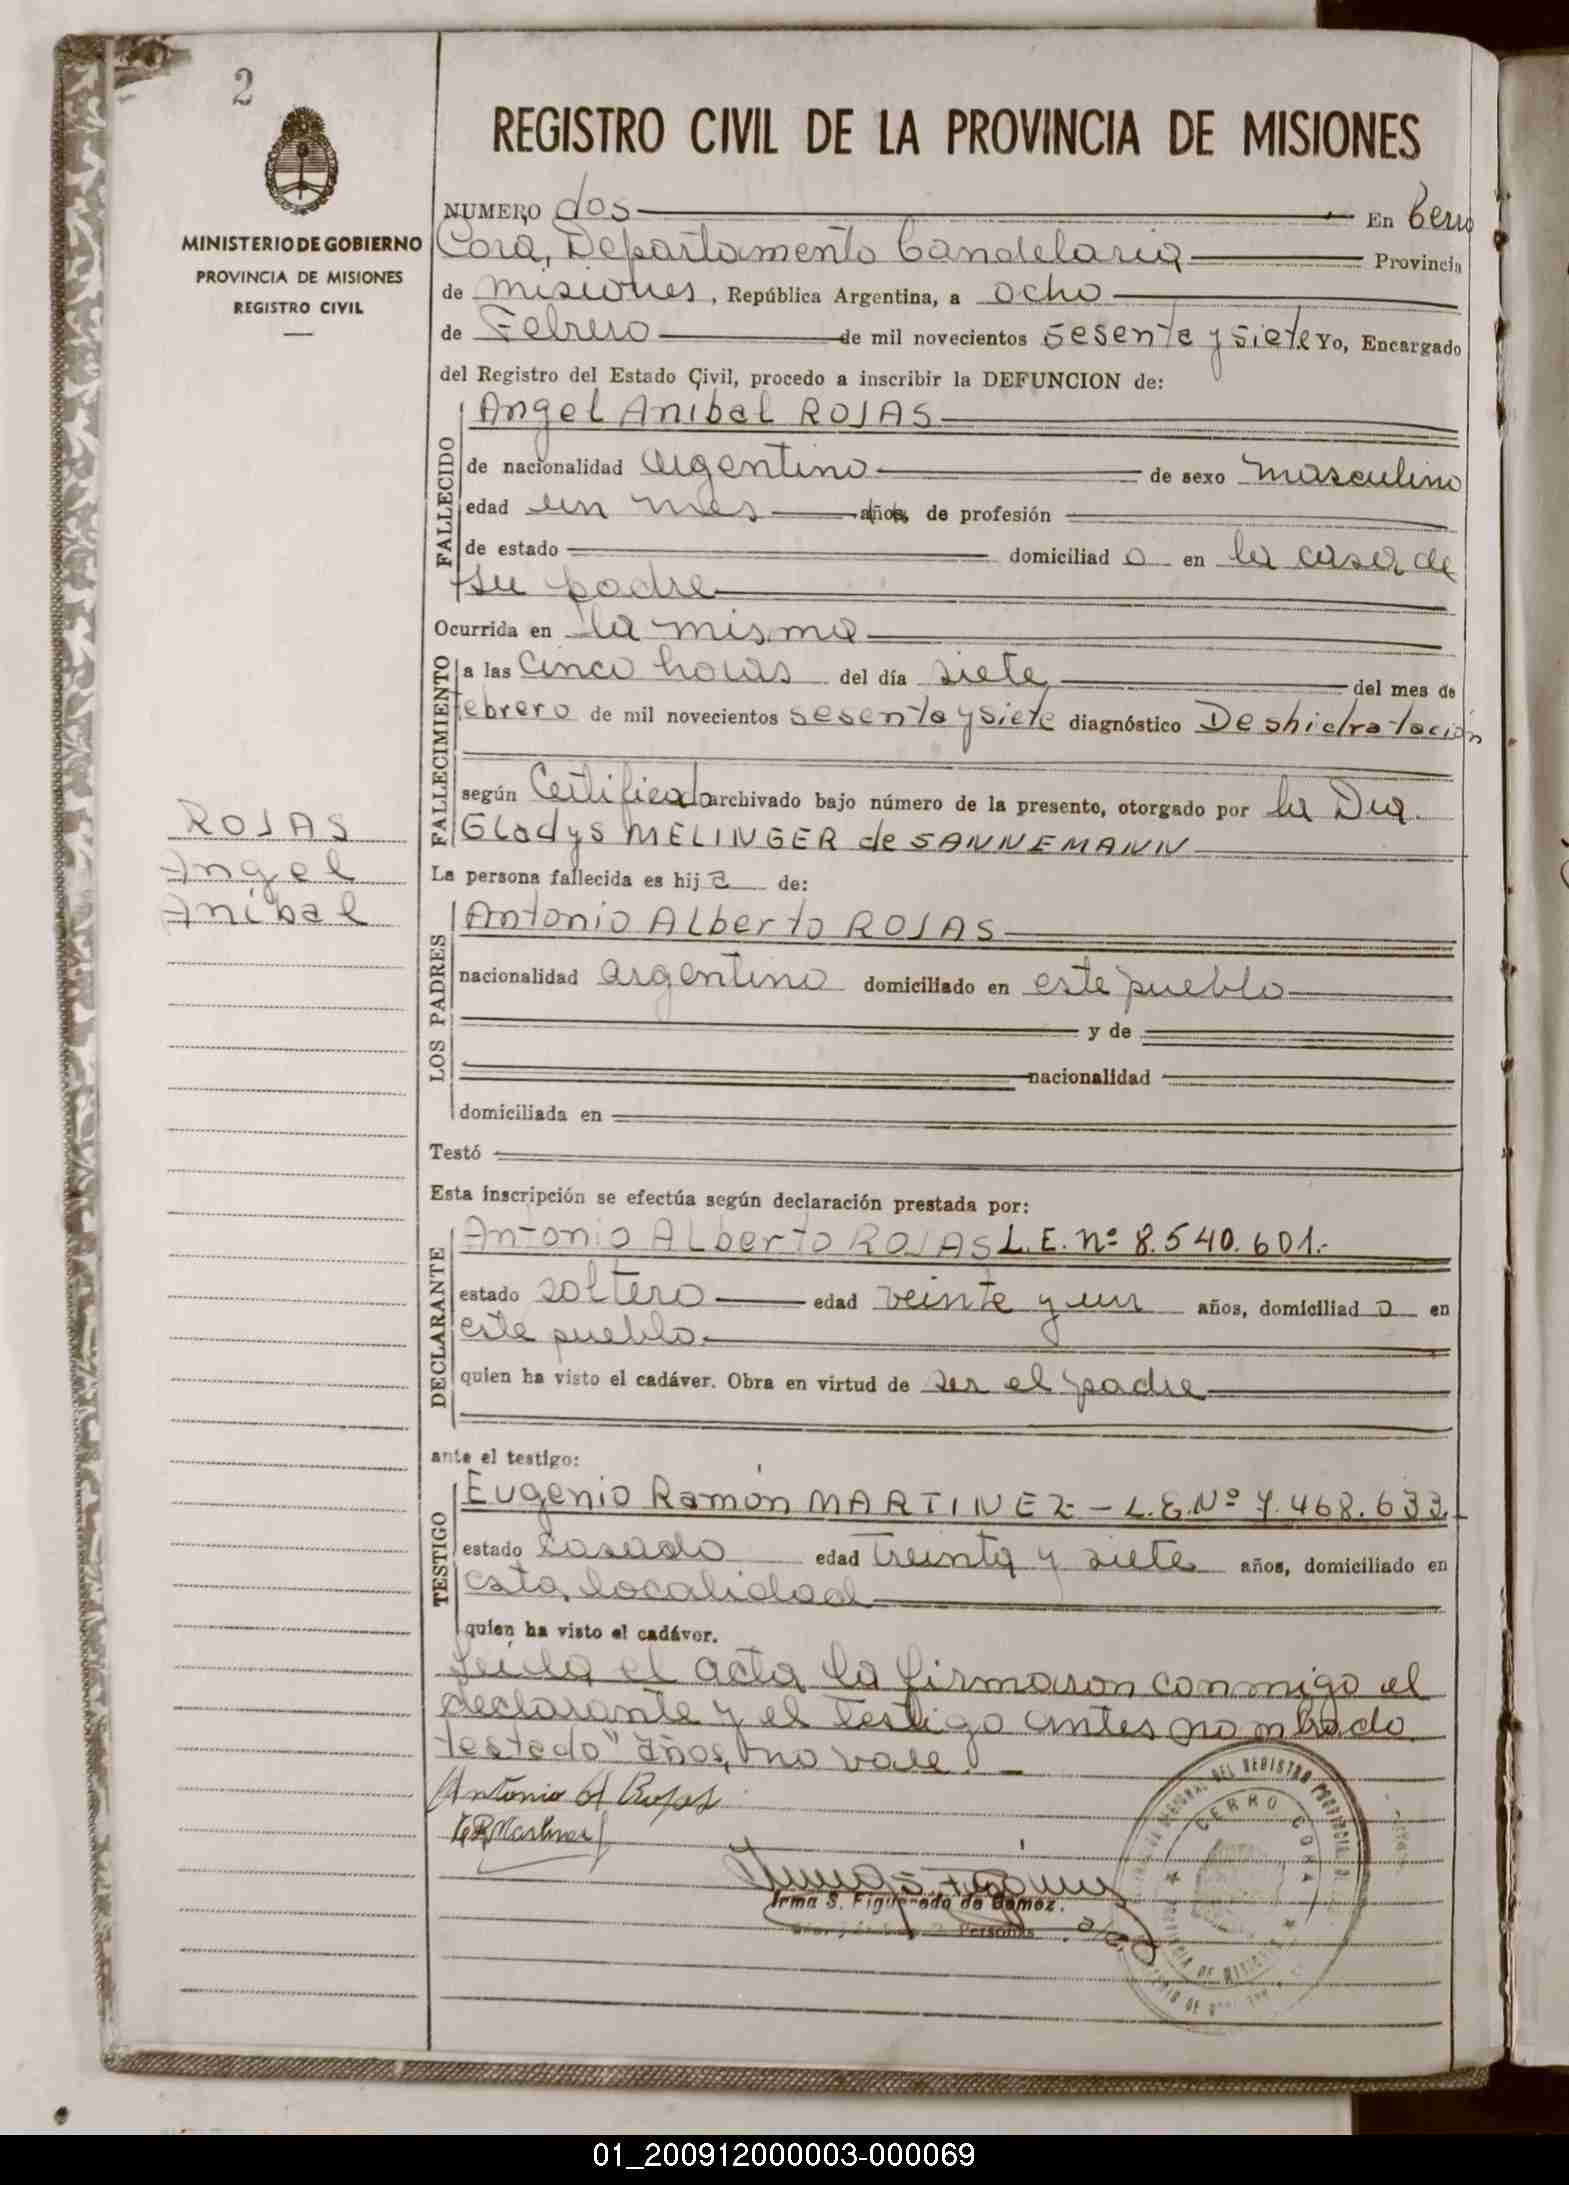 2
MINISTERIO DE GOBIERNO
PROVINCIA DE MISIONES
REGISTRO CIVIL
ROJAS
Angel
Anibal
REGISTRO CIVIL DE LA PROVINCIA DE MISIONES
NUMERO dos En Cerro
Corá, Departamento Candelaria Provincia
de misiones, República Argentina, a ocho
de Febrero de mil novecientos sesenta y siete Yo, Encargado
del Registro del Estado Civil, procedo a inscribir la DEFUNCION de:
FALLECIDO
Angel Anibal ROJAS
de nacionalidad argentino de sexo masculino
edad un mes años, de profesión
de estado domiciliad o en la casa de
su padre
Ocurrida en la misma
FALLECIMIENTO
a las cinco horas del día siete del mes de
febrero de mil novecientos sesenta y siete diagnóstico Deshidratación
según Certificado archivado bajo número de la presente, otorgado por la Dra.
Gladys MELINGER de SANNEMANN
La persona fallecida es hij o de:
LOS PADRES
Antonio Alberto ROJAS
nacionalidad argentino domiciliado en este pueblo
y de
nacionalidad
domiciliada en
Testó
Esta inscripción se efectúa según declaración prestada por:
DECLARANTE
Antonio Alberto ROJAS L.E. nº 8.540.601.-
estado soltero edad veinte y un años, domiciliad o en
este pueblo
quien ha visto el cadáver. Obra en virtud de ser el padre
ante el testigo:
TESTIGO
Eugenio Ramón MARTINEZ - L.E. Nº 7.468.633.-
estado casado edad treinta y siete años, domiciliado en
esta localidad
quien ha visto el cadáver.
Leída el acta la firmaron conmigo el
declarante y el testigo antes nombrado
testado "años, no vale. -
Antonio A Rojas
E R Martinez
Irma S. Figueredo de Gomez.
Personas
CERRO CORA
PROVINCIA DE MISIONES
01_200912000003-000069